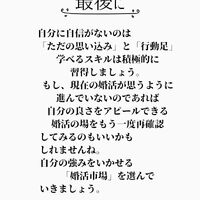 最後に
自分に自信がないのは
「ただの思い込み」と「行動足」
学べるスキルは積極的に
習得しましょう。
もし、現在の婚活が思うように
進んでいないのであれば
自分の良さをアピールできる
婚活の場をもう一度再確認
してみるのもいいかも
しれませんね。
自分の強みをいかせる
「婚活市場」を選んで
いきましょう。